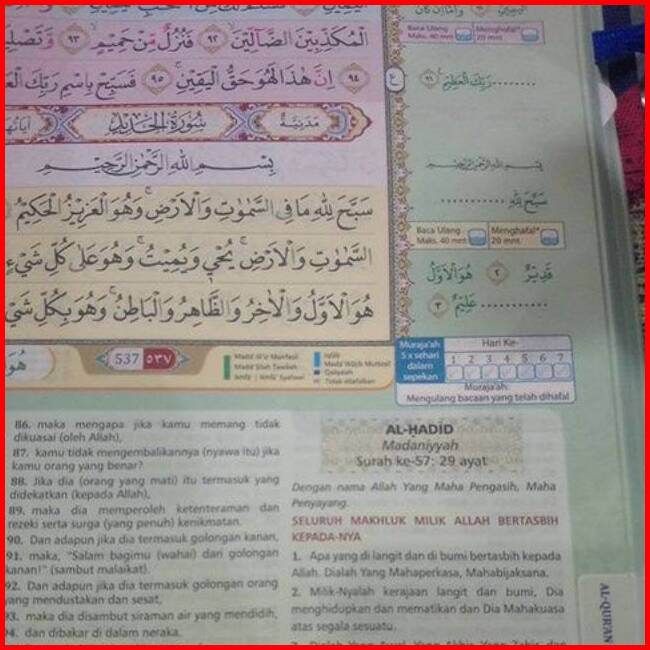 الْمُكَذِّبِيْنَ الضَّآلِّيْنَ ۹۲ فَنُزُلٌ مِّنْ حَمِيْمٍ ۹۳
۹٤ اِنَّ هٰذَا لَهُوَ حَقُّ الْيَقِيْنِ ۹٥ فَسَبِّحْ بِاسْمِ رَبِّكَ
مَدَنِيَّة سُوْرَةُ الْحَدِيْدِ
بِسْمِ اللّٰهِ الرَّحْمٰنِ الرَّحِيْمِ
سَبَّحَ لِلّٰهِ مَا فِى السَّمٰوٰتِ وَالْاَرْضِۚ وَهُوَ الْعَزِيْزُ الْحَكِيْمُ
السَّمٰوٰتِ وَالْاَرْضِۚ يُحْيٖ وَيُمِيْتُۚ وَهُوَ عَلٰى كُلِّ شَيْءٍ
هُوَ الْاَوَّلُ وَالْاٰخِرُ وَالظَّاهِرُ وَالْبَاطِنُۚ وَهُوَ بِكُلِّ شَيْ
537 ٥٣٧
Baca Ulang
Maks. 40 mnt
Menghafal*
20 mnt
..........رَبِّكَ الْعَظِيْمِ ۹٦
بِسْمِ اللّٰهِ الرَّحْمٰنِ الرَّحِيْمِ
سَبَّحَ لِلّٰهِ ..........
Baca Ulang
Maks. 40 mnt
Menghafal*
20 mnt
قَدِيْرٌ ۲ هُوَ الْاَوَّلُ
.......... عَلِيْمٌ ۳
Muraja'ah
5 x sehari
dalam
sepekan
Hari Ke-
1 2 3 4 5 6 7
Muraja'ah:
Mengulang bacaan yang telah dihafal
86. maka mengapa jika kamu memang tidak
dikuasai (oleh Allah),
87. kamu tidak mengembalikannya (nyawa itu) jika
kamu orang yang benar?
88. Jika dia (orang yang mati) itu termasuk yang
didekatkan (kepada Allah),
89. maka dia memperoleh ketenteraman dan
rezeki serta surga (yang penuh) kenikmatan.
90. Dan adapun jika dia termasuk golongan kanan,
91. maka, "Salam bagimu (wahai) dari golongan
kanan!" (sambut malaikat).
92. Dan adapun jika dia termasuk golongan orang
yang mendustakan dan sesat,
93. maka dia disambut siraman air yang mendidih,
94. dan dibakar di dalam neraka.
AL-ḤADĪD
Madaniyyah
Surah ke-57: 29 ayat
Dengan nama Allah Yang Maha Pengasih, Maha
Penyayang.
SELURUH MAKHLUK MILIK ALLAH BERTASBIH
KEPADA-NYA
1. Apa yang di langit dan di bumi bertasbih kepada
Allah. Dialah Yang Mahaperkasa, Mahabijaksana.
2. Milik-Nyalah kerajaan langit dan bumi, Dia
menghidupkan dan mematikan dan Dia Mahakuasa
atas segala sesuatu.
AL-QUR'AN